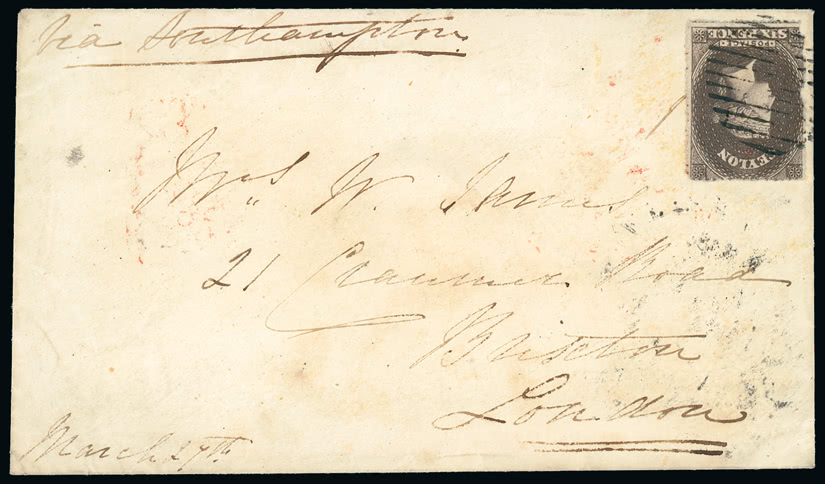 Via Southampton
SIX PENCE
POSTAGE
CEYLON
Mrs W. James
21 Cranmer Road
Brixton
London
March 27th